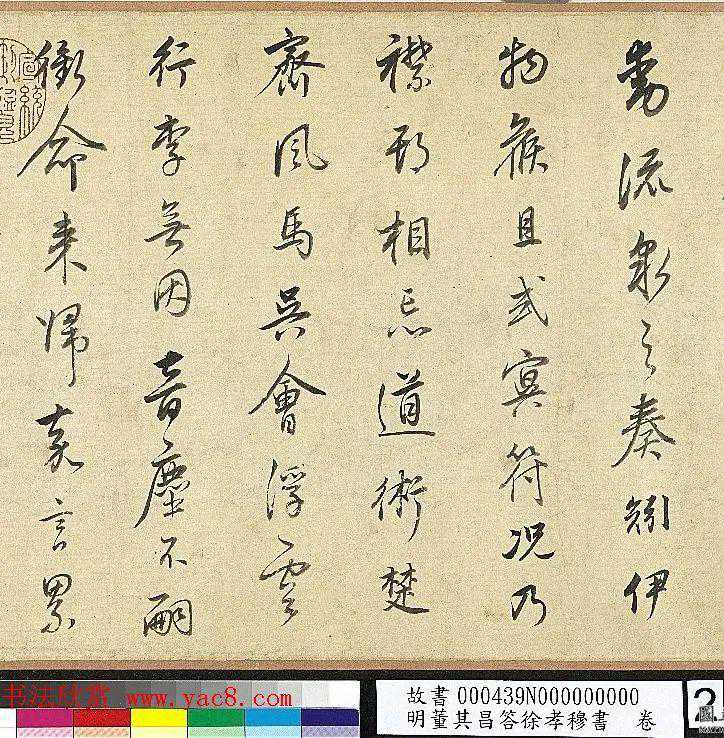 動流泉之奏矧伊
物候且或冥符況乃
襟期相忘道術楚
齊風馬吳會浮雲
行李無因音塵不嗣
銜命来歸嘉言累
书法欣赏 www.yac8.com
故書 000439N000000000
明董其昌答徐孝穆書 卷
2